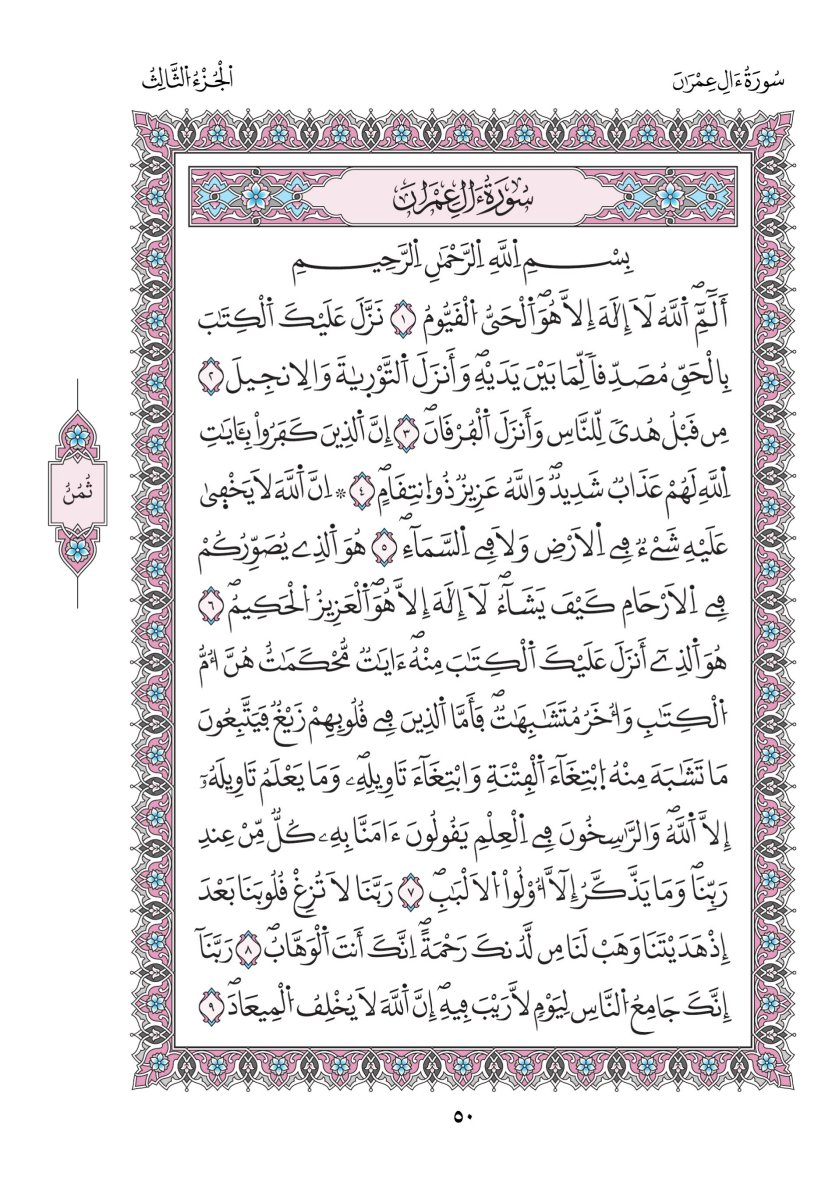 سُورَةُ ءَالِ عِمْرَٰنَ
اَلْجُزْءُ اُلثَّالِثُ
سُورَةُ ءَالِ عِمْرَٰنَ
بِسْمِ اِللَّهِ اِلرَّحْمَٰنِ اِلرَّحِيمِ
أَلَٓمِّٓۖ اَللَّهُ لَآ إِلَٰهَ إِلَّا هُوَۖ اَلْحَيُّ اُلْقَيُّومُ ١ نَزَّلَ عَلَيْكَ اَلْكِتَٰبَ
بِالْحَقِّ مُصَدِّقاٗ لِّمَا بَيْنَ يَدَيْهِۖ وَأَنزَلَ اَلتَّوْرَىٰةَ وَالِانجِيلَ ٢
مِن قَبْلُ هُدىٗ لِّلنَّاسِ وَأَنزَلَ اَلْفُرْقَانَۖ ٣ إِنَّ اَلذِينَ كَفَرُواْ بِـَٔايَٰتِ
اِللَّهِ لَهُمْ عَذَابٞ شَدِيدٞۖ وَاللَّهُ عَزِيزٞ ذُو اُنتِقَامٍۖ ٤ ۞ اِنَّ اَللَّهَ لَا يَخْفَىٰ
عَلَيْهِ شَےْءٞ فِے اِلَارْضِ وَلَا فِے اِلسَّمَآءِۖ ٥ هُوَ اَلذِے يُصَوِّرُكُمْ
فِے اِلَارْحَامِ كَيْفَ يَشَآءُۖ لَآ إِلَٰهَ إِلَّا هُوَۖ اَلْعَزِيزُ اُلْحَكِيمُۖ ٦
هُوَ اَلذِےٓ أَنزَلَ عَلَيْكَ اَلْكِتَٰبَ مِنْهُۖ ءَايَٰتٞ مُّحْكَمَٰتٌ هُنَّ أُمُّ
اُلْكِتَٰبِ وَأُخَرُ مُتَشَٰبِهَٰتٞۖ فَأَمَّا اَلذِينَ فِے قُلُوبِهِمْ زَيْغٞ فَيَتَّبِعُونَ
مَا تَشَٰبَهَ مِنْهُ اُبْتِغَآءَ اَلْفِتْنَةِ وَابْتِغَآءَ تَاوِيلِهِۦۖ وَمَا يَعْلَمُ تَاوِيلَهُۥٓ
إِلَّا اَللَّهُۖ وَالرَّٰسِخُونَ فِے اِلْعِلْمِ يَقُولُونَ ءَامَنَّا بِهِۦ كُلّٞ مِّنْ عِندِ
رَبِّنَاۖ وَمَا يَذَّكَّرُ إِلَّآ أُوْلُواْ اُلَالْبَٰبِۖ ٧ رَبَّنَا لَا تُزِغْ قُلُوبَنَا بَعْدَ
إِذْ هَدَيْتَنَا وَهَبْ لَنَا مِن لَّدُنكَ رَحْمَةًۖ اِنَّكَ أَنتَ اَلْوَهَّابُۖ ٨ رَبَّنَآ
إِنَّكَ جَامِعُ اُلنَّاسِ لِيَوْمٖ لَّا رَيْبَ فِيهِۖ إِنَّ اَللَّهَ لَا يُخْلِفُ اُلْمِيعَادَۖ ٩
ثُمُنُ
٥٠